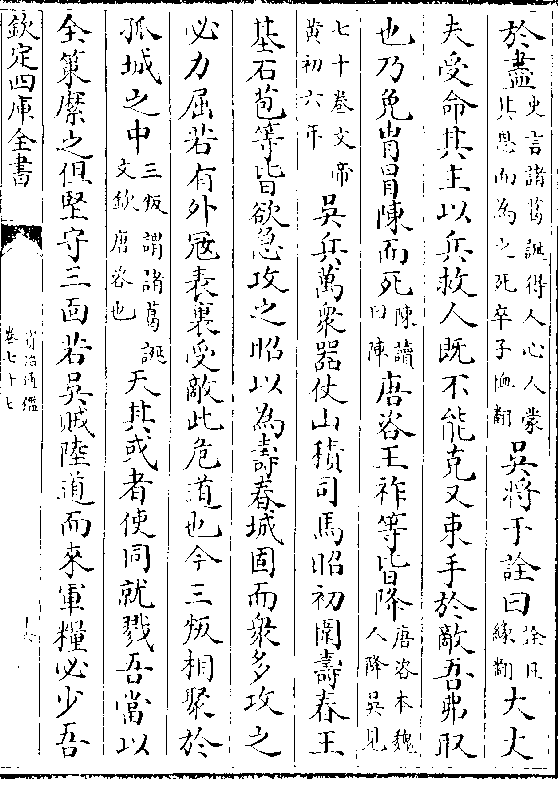 於盡史言諸葛誕得人心人蒙其恩而為之死卒子恤翻吳將于詮曰詮且緣翻大丈
夫受命其主以兵救人既不能克又束手於敵吾弗取
也乃免胄冒陳而死陳讀曰陣唐咨王祚等皆降唐咨本魏人降吳見
七十卷文帝黄初六年吳兵萬衆器仗山積司馬昭初圍壽春王
基石苞等皆欲急攻之昭以為壽春城固而衆多攻之
必力屈若有外宼表裏受敵此危道也今三叛相聚於
孤城之中三叛謂諸葛誕文欽唐咨也天其或者使同就戮吾當以
全策縻之但堅守三面若吳賊陸道而來軍糧必少吾
欽定四庫全書
資治通鑑
卷七十七